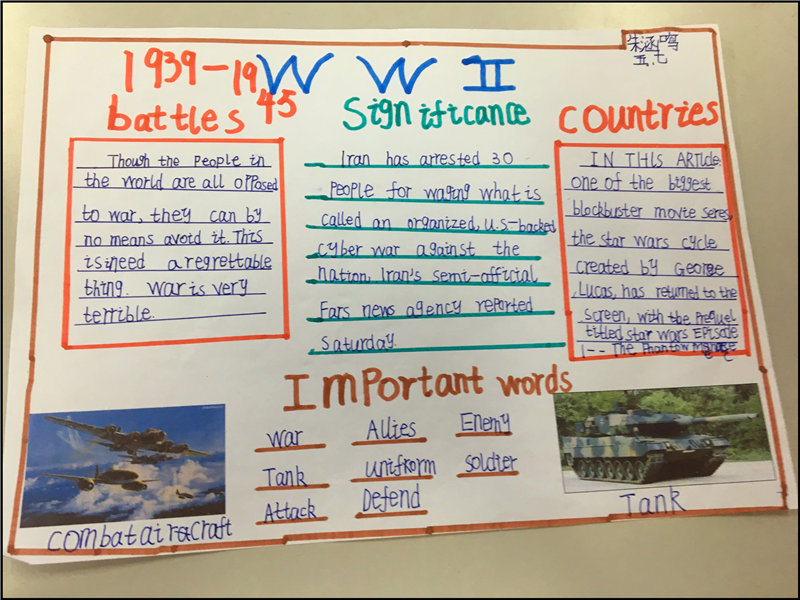 朱涵鸣
五.七
1939-1945
WW II
battles
Though the people in
the world are all opposed
to war, they can by
no means avoid it. This
is ineed a regrettable
thing. War is very
terrible.
Significance
Iran has arrested 30
people for waging what is
called an organized, U.S-backed
cyber war against the
nation, Iran's semi-official
Fars news agency reported
Saturday.
Countries
IN THIS ARTicle:
one of the biggest
blockbuster movie seres,
the star wars cycle
created by George
Lucas, has returned to the
screen, with the prequel
titled star wars Episode
1-- The Phantom
Important words
War Allies Enemy
Tank soldier
Attack Defend
Combat aircraft
Tank